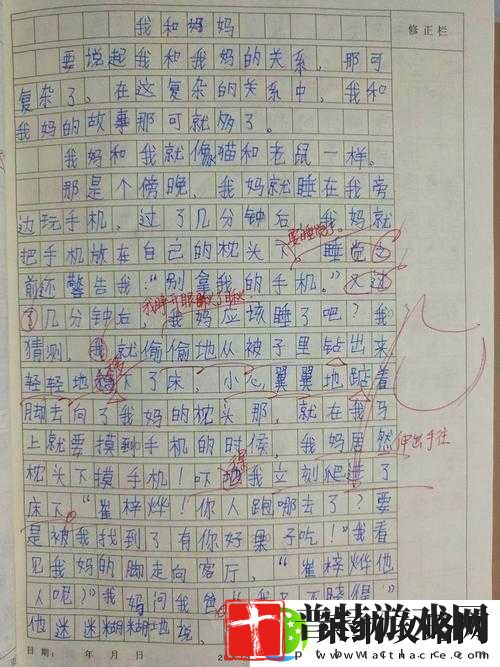 我和妈妈
修正栏
要说起我和我妈的关系，那可
复杂了，在这复杂的关系中，我和
我妈的故事那可就够了。
我妈和我就像猫和老鼠一样。
那是个傍晚，我妈就睡在我旁
边玩手机，过了几分钟后，我妈就
要睡觉了。
把手机放在自己的枕头下，睡觉
前还警告我："别拿我的手机。"又过
我睁开眼
了几分钟后，我妈应该睡了吧？我
猜测，我就偷偷地从被子里钻出来
轻轻地下了床，小心翼翼地踮着
脚去向了我妈的枕头那，就在我马
上就要摸到手机的时候，我妈居然
伸出手往
枕头下摸手机！吓得我立刻爬进了
床下。"崔梓烨！你人跑哪去了？要
是被我找到了有你好果子吃！"我看
见我妈的脚走向客厅，"崔梓烨他
人呢？"我妈问我爸
他迷迷糊糊地说，
日期： 年 月 日